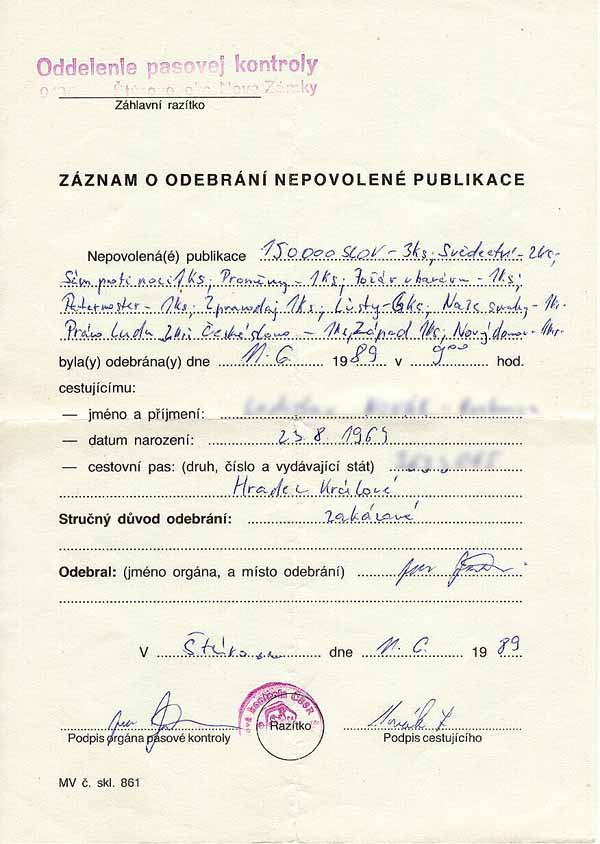 Oddelenie pasovej kontroly
Štúrovo, okr. Nové Zámky
Záhlavní razítko
ZÁZNAM O ODEBRÁNÍ NEPOVOLENÉ PUBLIKACE
Nepovolená(é) publikace 150000 SLOV - 3ks, Svědectví - 2ks,
Sám proti noci 1ks, Proměny - 1ks, Požár v baráku - 1ks,
Paternoster - 1ks, Zpravodaj 1ks, Listy - 6ks, Naše snahy - 1ks
Právo Lidu České slovo - 1ks, Západ 1ks, Nový domov - 1ks
byla(y) odebrána(y) dne 11. 6. 1989 v 9 00 hod.
cestujícímu:
— jméno a příjmení:
— datum narození: 23. 8. 1965
— cestovní pas: (druh, číslo a vydávající stát)
Hradec Králové
Stručný důvod odebrání: zakázané
Odebral: (jméno orgána, a místo odebrání)
V Štúrovo dne 11. 6. 1989
Podpis orgána pasové kontroly
Razítko
Podpis cestujícího
MV č. skl. 861